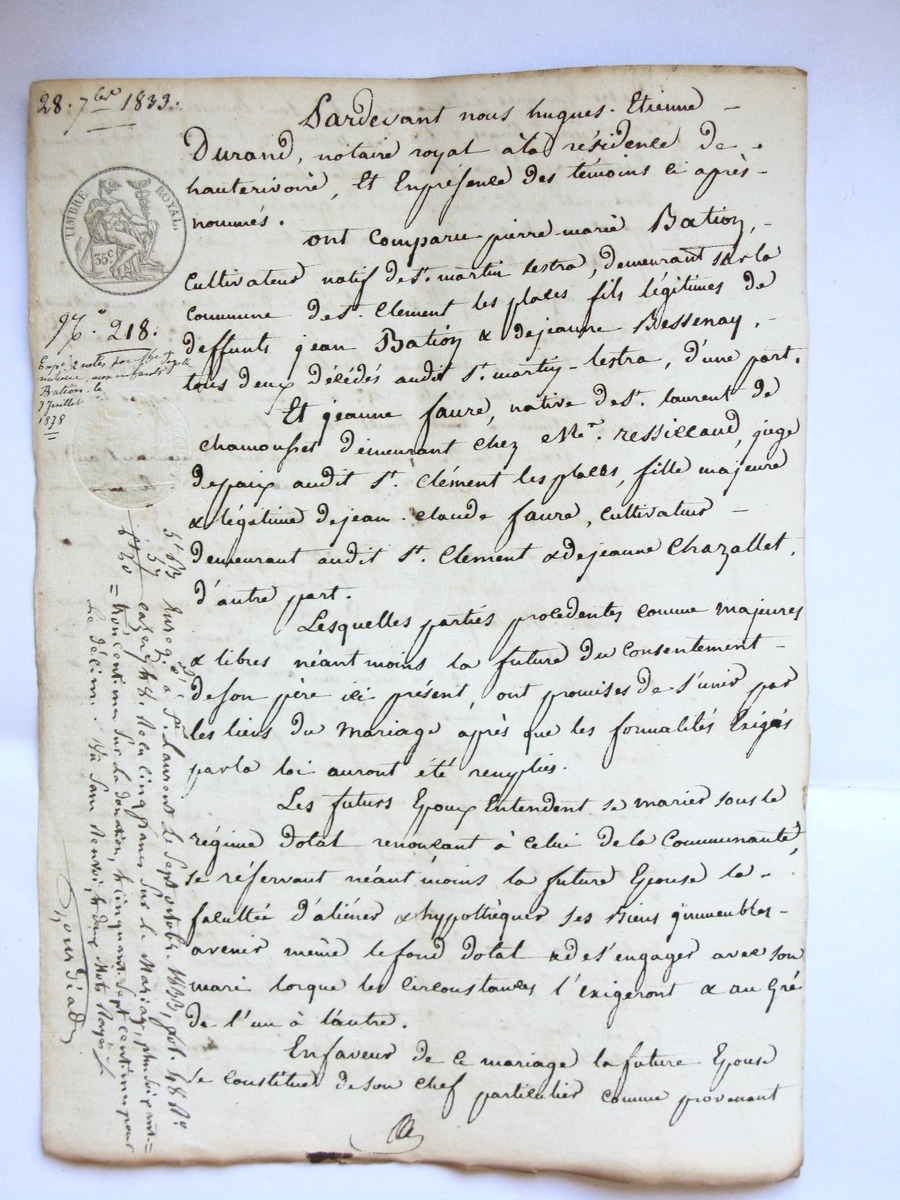 28. 7bre 1833.
TIMBRE ROYAL.
35c
No. 218.
notaire, aux enfants
Bation, le
7 Juillet
1878
Pardevant nous hugues. Etienne
Durand, notaire royal à la résidence de
hauterivoire, Et Enprésence des témoins ci après
nommés.
ont comparu pierre marie Bation,
Cultivateur natif de St. martin lestra, demeurant sur la
Commune de St. Clement les places fils légitimes de
deffunts jean Bation & de jeanne Bessenay,
tous deux décédés audit St. martin-lestra, d'une part.
Et jeanne faure, native de St. laurent de
chamousset demeurant chez Me. ressicaud, juge
de paix audit St. Clément les places, fille majeure
& légitime de jean. claude faure, cultivateur
demeurant audit St. Clement & de jeanne Chazallet,
d'autre part.
Lesquelles parties procedentes comme majeures
& libres néant moins la future du Consentement
de son père ici présent, ont promises de s'unir par
les liens du Mariage après que les formalités Exigés
par la loi auront été remplies.
Les futurs Epoux Entendent se marier sous le
régime dotal renoncant à Celui de la Communauté,
se réservant néant'moins la future Epouse la
facultée d'aliéner & hypothèquer ses Biens jmmeubles
avenir même le fond dotal & de s'engager avec son
mari lorque les Circonstances l'Exigeront & au Gré
de l'un à l'autre.
Enfaveur de Ce mariage la future Epouse
se Constitue de son Chef particulier comme provenant
Enreg. à St. Laurent le Sept octobre 1833, fol. 48 Ro.
Reçu cinq francs sur le Mariage, plus
centimes sur la donation, & cinquante sept centimes pour
le décime. Vu sans renvoi, & deux Mots Rayés